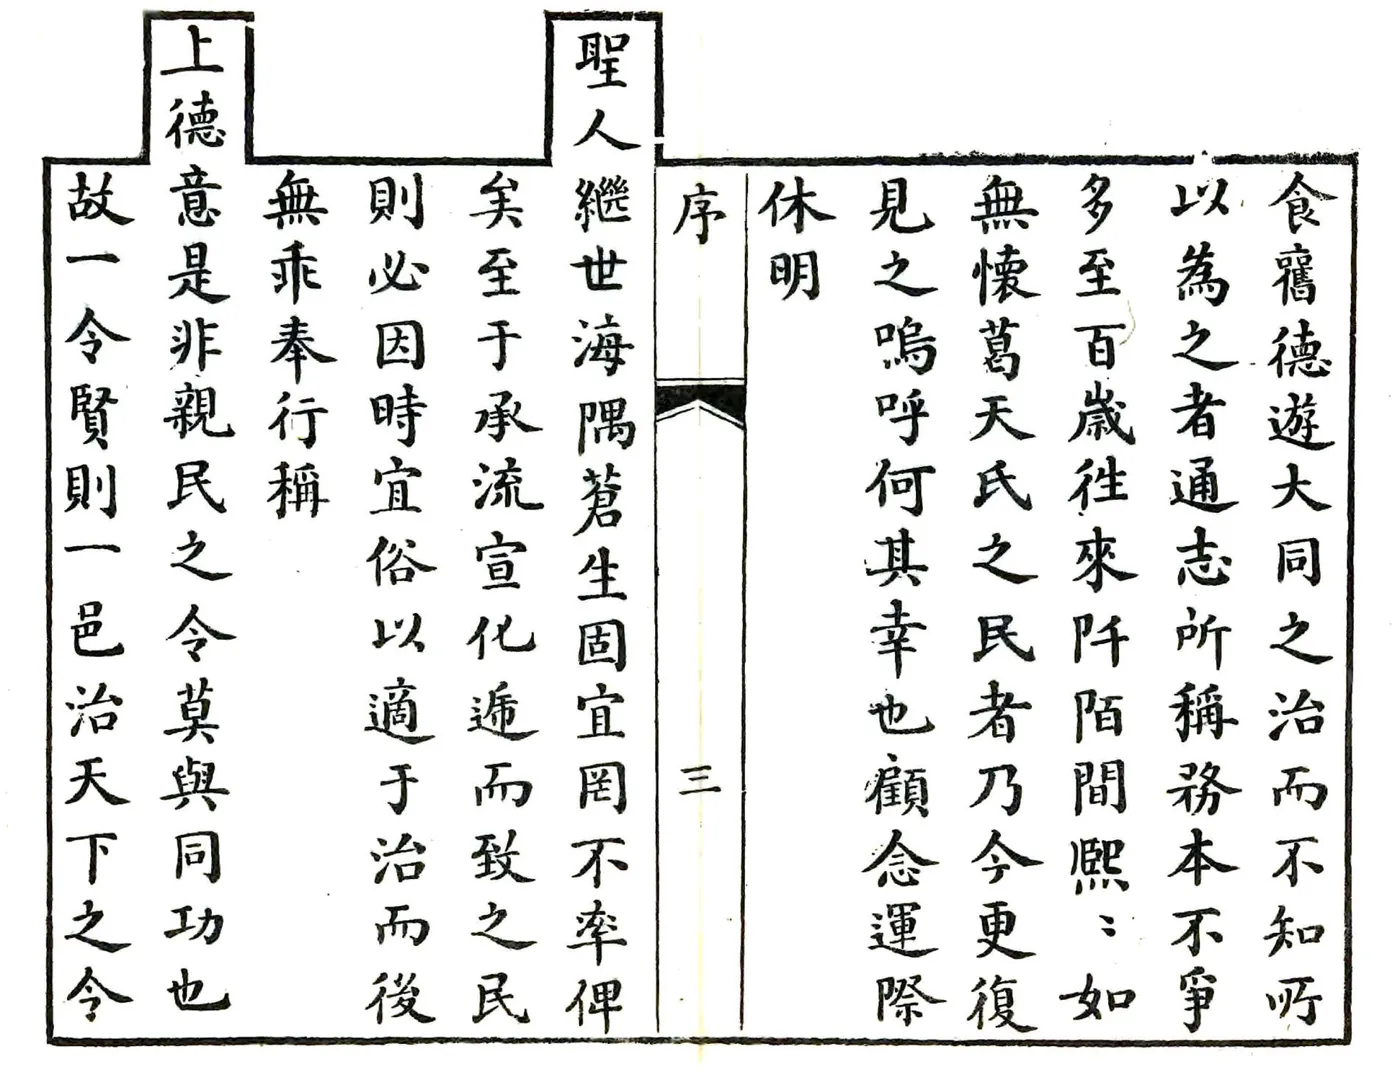 食舊德遊大同之治而不知所
以為之者通志所稱務本不爭
多至百歲徃來阡陌間熙〻如
無懷葛天氏之民者乃今更復
見之嗚呼何其幸也顧念運際
休明
序
三
聖人繼世海隅蒼生固宜罔不率俾
矣至于承流宣化遞而致之民
則必因時宜俗以適于治而後
無乖奉行稱
上德意是非親民之令莫與同功也
故一令賢則一邑治天下之令